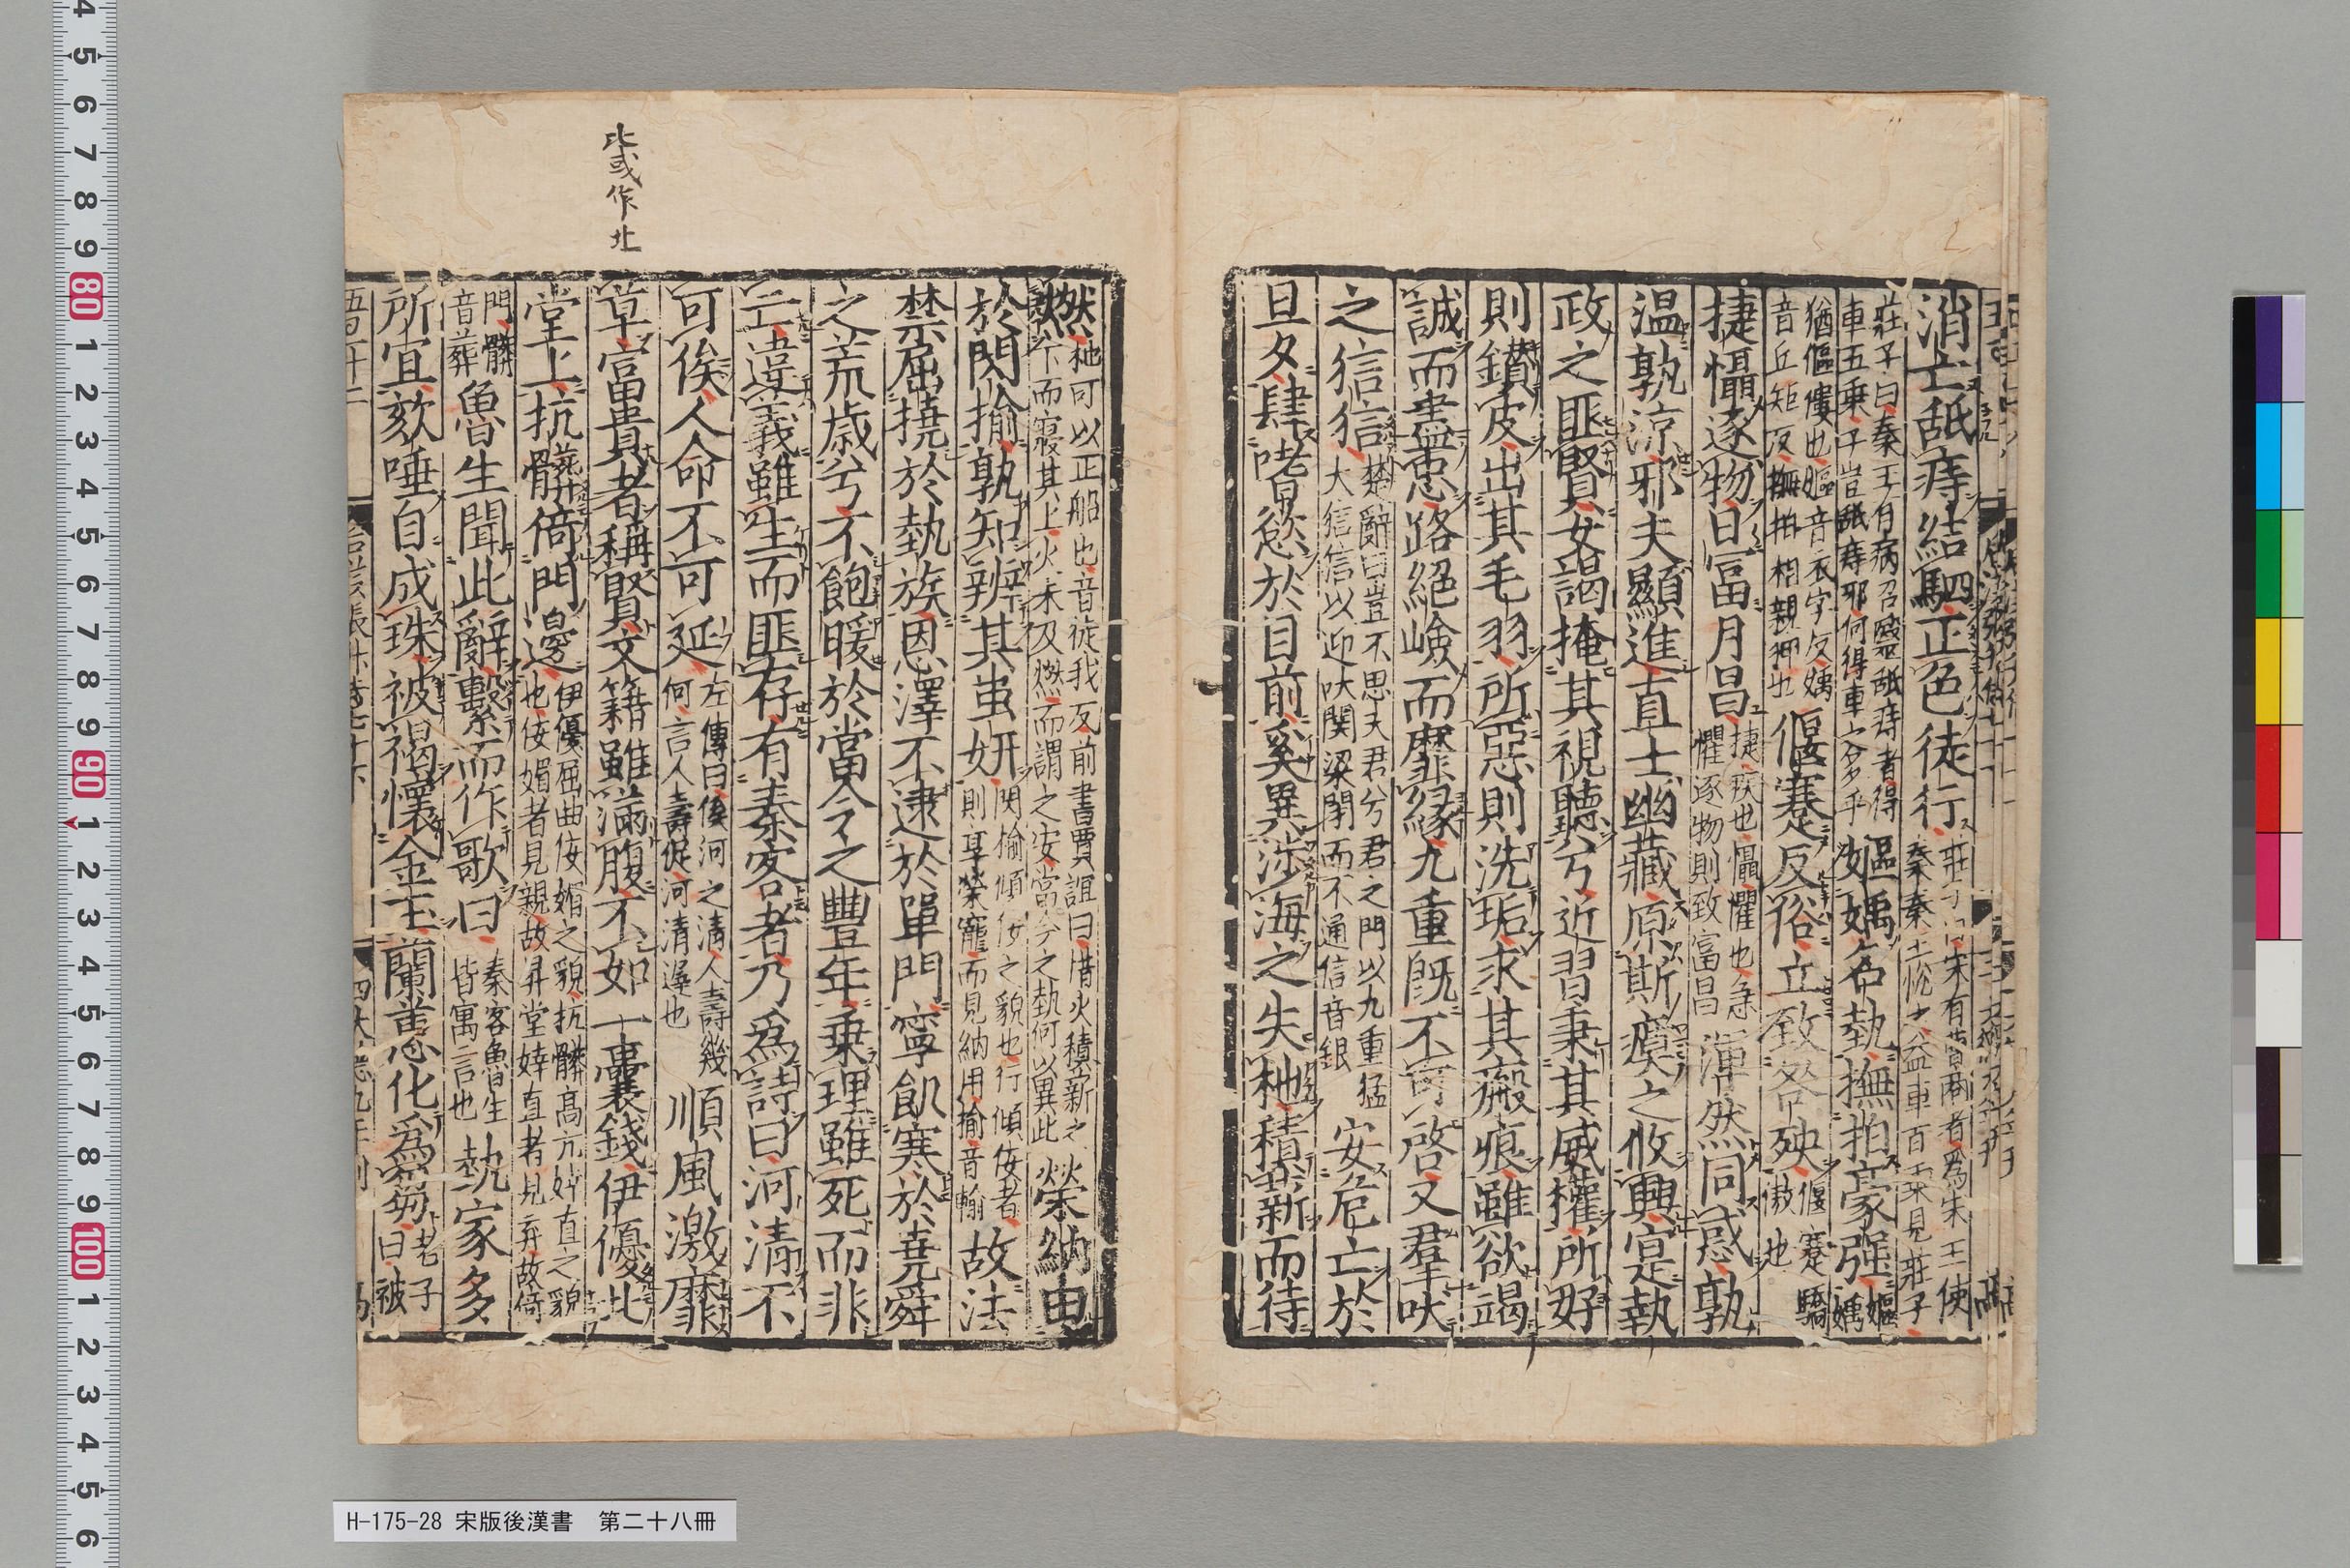 消亡舐痔結駟正色徒行莊子曰宋有曹商者爲宋王使秦秦王悅之益車百乘見莊子
莊子曰秦王有病召醫舐痔者得車五乘子豈舐痔邪何得車之多乎嫗㜏名埶撫拍豪强嫗㜏
猶傴僂也嫗音衣宇反㜏音丘矩反撫拍相親狎也偃蹇反俗立致咎殃偃蹇驕傲也
捷懾逐物日富月昌捷疾也懾懼也急懼逐物則致富昌渾然同惑孰
温孰涼邪夫顯進直士幽藏原斯瘼之攸興寔執
政之匪賢女謁掩其視聽兮近習秉其威權所好
則鑽皮出其毛羽所惡則洗垢求其瘢痕雖欲竭
誠而盡忠路絕嶮而靡緣九重既不可啓又羣吠
之㹞㹞楚辭曰豈不思夫君兮君之門以九重猛犬㹞㹞以迎吠関梁閉而不通㹞音銀安危亡於
旦夕肆嗜慾於目前奚異涉海之失柂積薪而待
然柂可以正船也音徒我反前書賈誼曰措火積薪之下而寢其上火未及燃而謂之安當今之埶何以異此榮納由
於閃揄孰知辨其蚩妍閃揄傾佞之貌也行傾佞者則享榮寵而見納用揄音輸故法
禁屈撓於埶族恩澤不逮於單門寧飢寒於堯舜
之荒歲兮不飽暖於當今之豐年乗理雖死而非
亡違義雖生而匪存有秦客者乃爲詩曰河清不
可俟人命不可延左傳曰俟河之清人壽幾何言人壽促河清遲也順風激靡
草富貴者稱賢文籍雖滿腹不如一囊錢伊優北
堂上抗髒倚門邊伊優屈曲佞媚之貌抗髒高亢婞直之貌也佞媚者見親故昇堂婞直者見弃故倚
門髒音葬魯生聞此辭繫而作歌曰秦客魯生皆寓言也埶家多
所宜欬唾自成珠被褐懷金玉蘭蕙化爲芻老子曰被
此或作北
H-175-28 宋版後漢書 第二十八冊